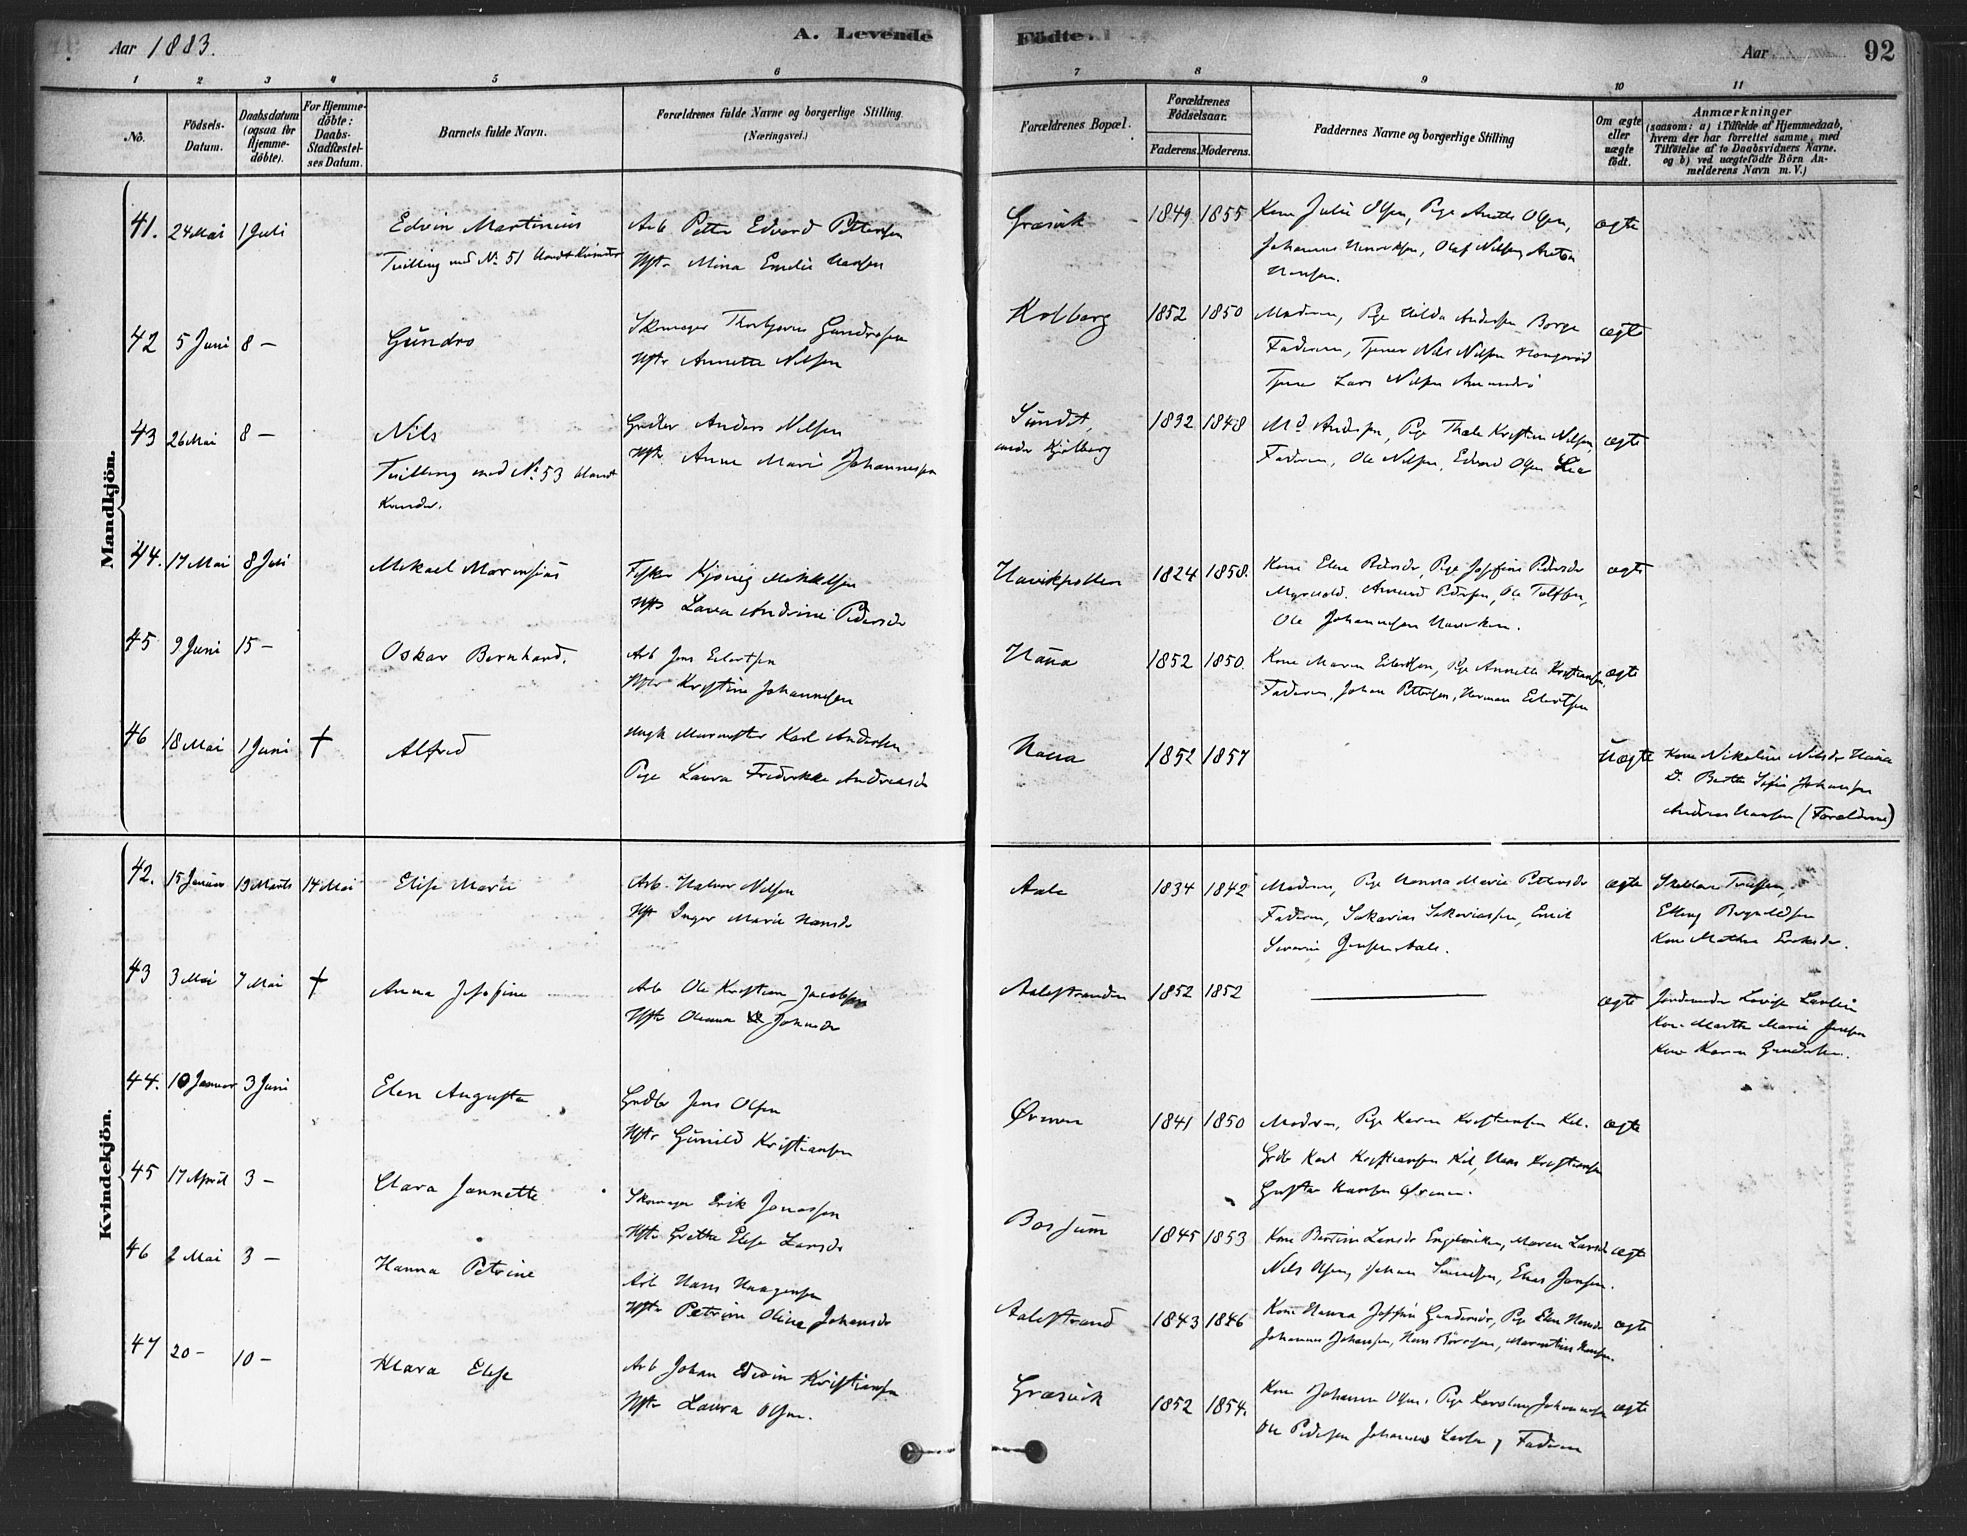 Aar 1883.
A. Levende
Födte.
Aar
92
1 2 3 4 5 6 7 8 9 10 11
No.
Födsels-
Datum.
Daabsdatum
(ogsaa for
Hjemme-
döbte).
For Hjemme-
döbte:
Daabs-
Stadfæstel-
ses Datum.
Barnets fulde Navn.
Forældrenes fulde Navne og borgerlige Stilling
(Næringsvei.)
Forældrenes Bopæl.
Forældrenes
Födselsaar.
Faderens. Moderens.
Faddernes Navne og borgerlige Stilling
Om ægte
eller
uægte
födt.
Anmærkninger
(saasom: a) i Tilfælde af Hjemmedaab,
hvem der har forrettet samme, med
Tilföielse af to Daabsvidners Navne.
og b) ved uægtefödte Börn An-
melderens Navn m. V.)
Mandkjön.
41. 24 Mai 1 Juli Edvin Martinius Arb Petter Edvard Pettersen Græsvik 1849 1855 Kone Julie Olsen, Pige Anette Olsen, ægte
Tvilling med No 51 blandt Kvinder Hstr Mina Emilie Hansen Johannes Henriksen, Olaf Nilsen, Anton
Hansen.
42 5 Juni 8 - Gundro Skomager Thorbjørn Gundrosen Kolberg 1852 1850 Moderen, Pige Hilda Andersen Borge ægte
Hstr Annette Nilsen Faderen, Tjener Nils Nilsen
Tjener Lars Nilsen
43 26 Mai 8 - Nils Grdbr Anders Nilsen Sundet, 1832 1848 Md Andersen, Pige Thale Kristine Nilsen, ægte
Tvilling med No 53 blandt Hstr Anne Marie Johannessen under Kjølberg Faderen, Ole Nilsen, Edvard Olsen Lie
Kvinder.
44. 17 Mai 8 Juli Mikael Marensius Fisker Mikkelsen 1824 1858. Kone Elen Pedersdr, Pige Josefine Pedersdr ægte
Hstr Lava Andrine Pedersdr Amund Pedersen, Ole Tollefsen,
Ole Johannesen
45 9 Juni 15 - Oskar Bernhard. Arb Jens Eilertsen Haua 1852 1850. Kone Maren Eilertsen, Pige Annette Kristiansen, ægte
Hstr Kristine Johannesen Faderen, Johan Pettersen, Herman Eilertsen
46 18 Mai 1 Juni † Alfred Ungk Murmester Karl Andersen Haua 1852 1857 Uægte Kone Nikoline Nilsdr Haua
Pige Laura Fredrikke Andreasdr Do Berthe Sofie Johansen
Andreas Hansen (Forældrene)
Kvindekjön.
42. 15 Januar 19 Marts 14 Mai Elise Marie Arb. Halvor Nilsen Aale 1834 1842 Moderen, Pige Hanna Marie Pettersdr ægte
Hstr Inger Marie Hansdr Faderen, Sakarias Sakariassen, Emil
Severin Jensen Aale. Kone Mathea
43 3 Mai 7 Mai † Anna Josefine Arb Ole Kristian Jacobsen Aalestranden 1852 1852 ægte Jordemoder Lovise
Hstr Oleana Johnsdr Kone Marthe Marie Jensen
Kone Karen
44. 10 Januar 3 Juni Elen Augusta Grdbr Jens Olsen Ørmen 1841 1850 Moderen, Pige Karen Kristiansen Kil. ægte
Hstr Gunild Kristiansen Grdb Karl Kristiansen Kil, Hans Kristiansen
Gustav Hansen Ørmen.
45 17 April 3 - Clara Jannette Skomager Erik Jonassen Bossum 1845 1853 Kone Larsdr Engelsviken, Maren Larsdr ægte
Hstr Grethe Elise Larsdr Nils Olsen, Johan Elias Jansen.
46 2 Mai 3 - Hanna Petrine Arb Hans Haagensen Aalestrand 1843 1846 Kone Hanna Josefine Gundersdr, Pige Elen Hansdr ægte
Hstr Petrine Oline Johansdr Johannes Johansen, Hans Hansen.
47 20 - 10 - Klara Elise Arb Johan Edvin Kristiansen Græsvik 1852 1854. Kone Johanne Olsen, Pige Karoline Johannesen ægte
Hstr Laura Olsen. Ole Pedersen Johannes Larsen, Faderen